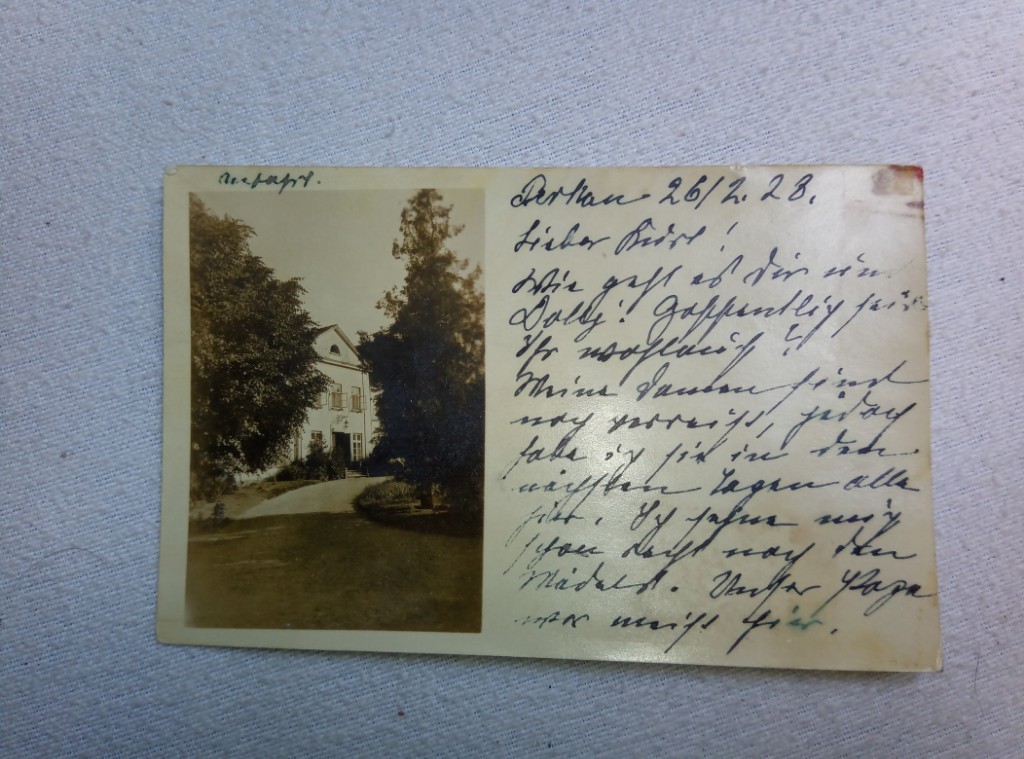 Anfahrt.
Perkau 26/2. 28.
Lieber Kurt!
Wie geht es Dir und
Dolly? Hoffentlich seid
Ihr wohlauf!
Meine Damen sind
noch verreist, jedoch
habe ich sie in den
nächsten Tagen alle
hier. Ich sehne mich
schon recht nach den
Mädels. Unser Papa
war meist hier.